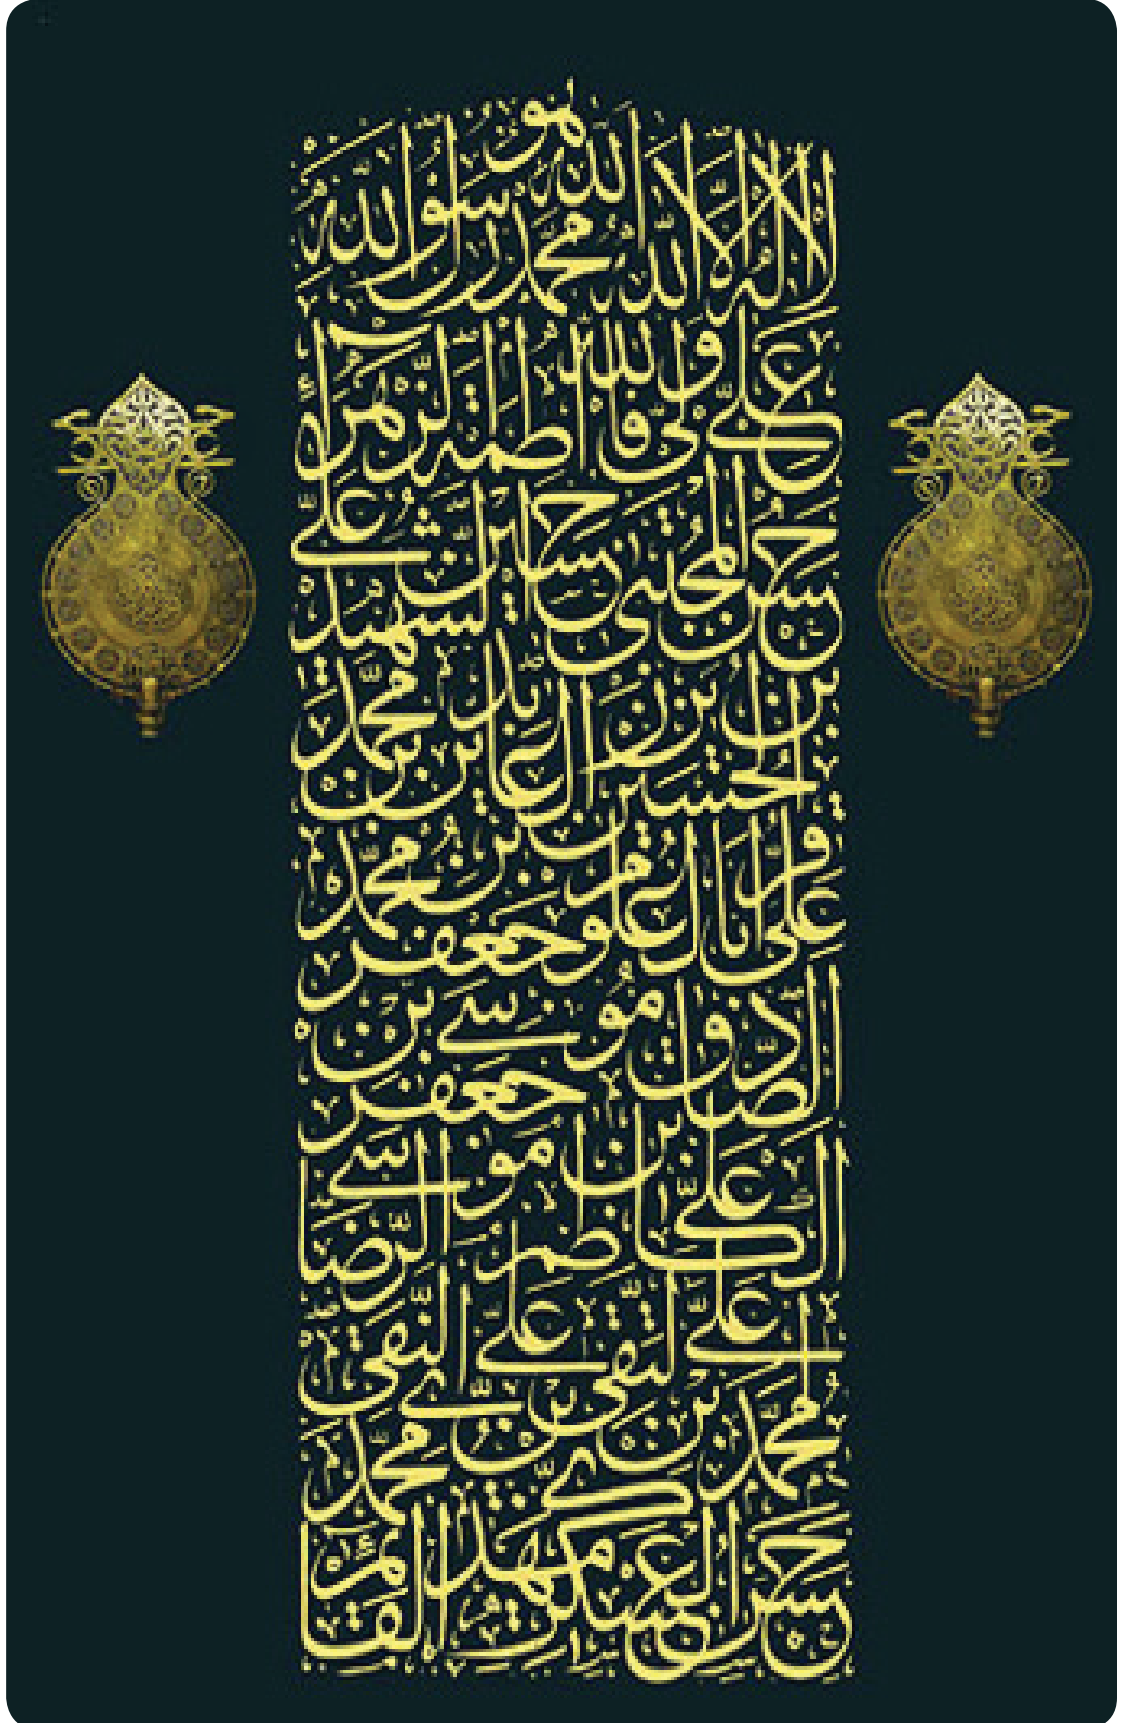 هو الله
لا إله إلا الله محمد رسول الله
علي ولي الله فاطمة الزهراء
حسن المجتبى حسين الشهيد
علي بن الحسين زين العابدين محمد بن
علي باقر العلوم جعفر بن محمد
الصادق موسى بن جعفر
الكاظم علي بن موسى الرضا
محمد بن علي التقي علي النقي
حسن العسكري محمد المهدي القائم